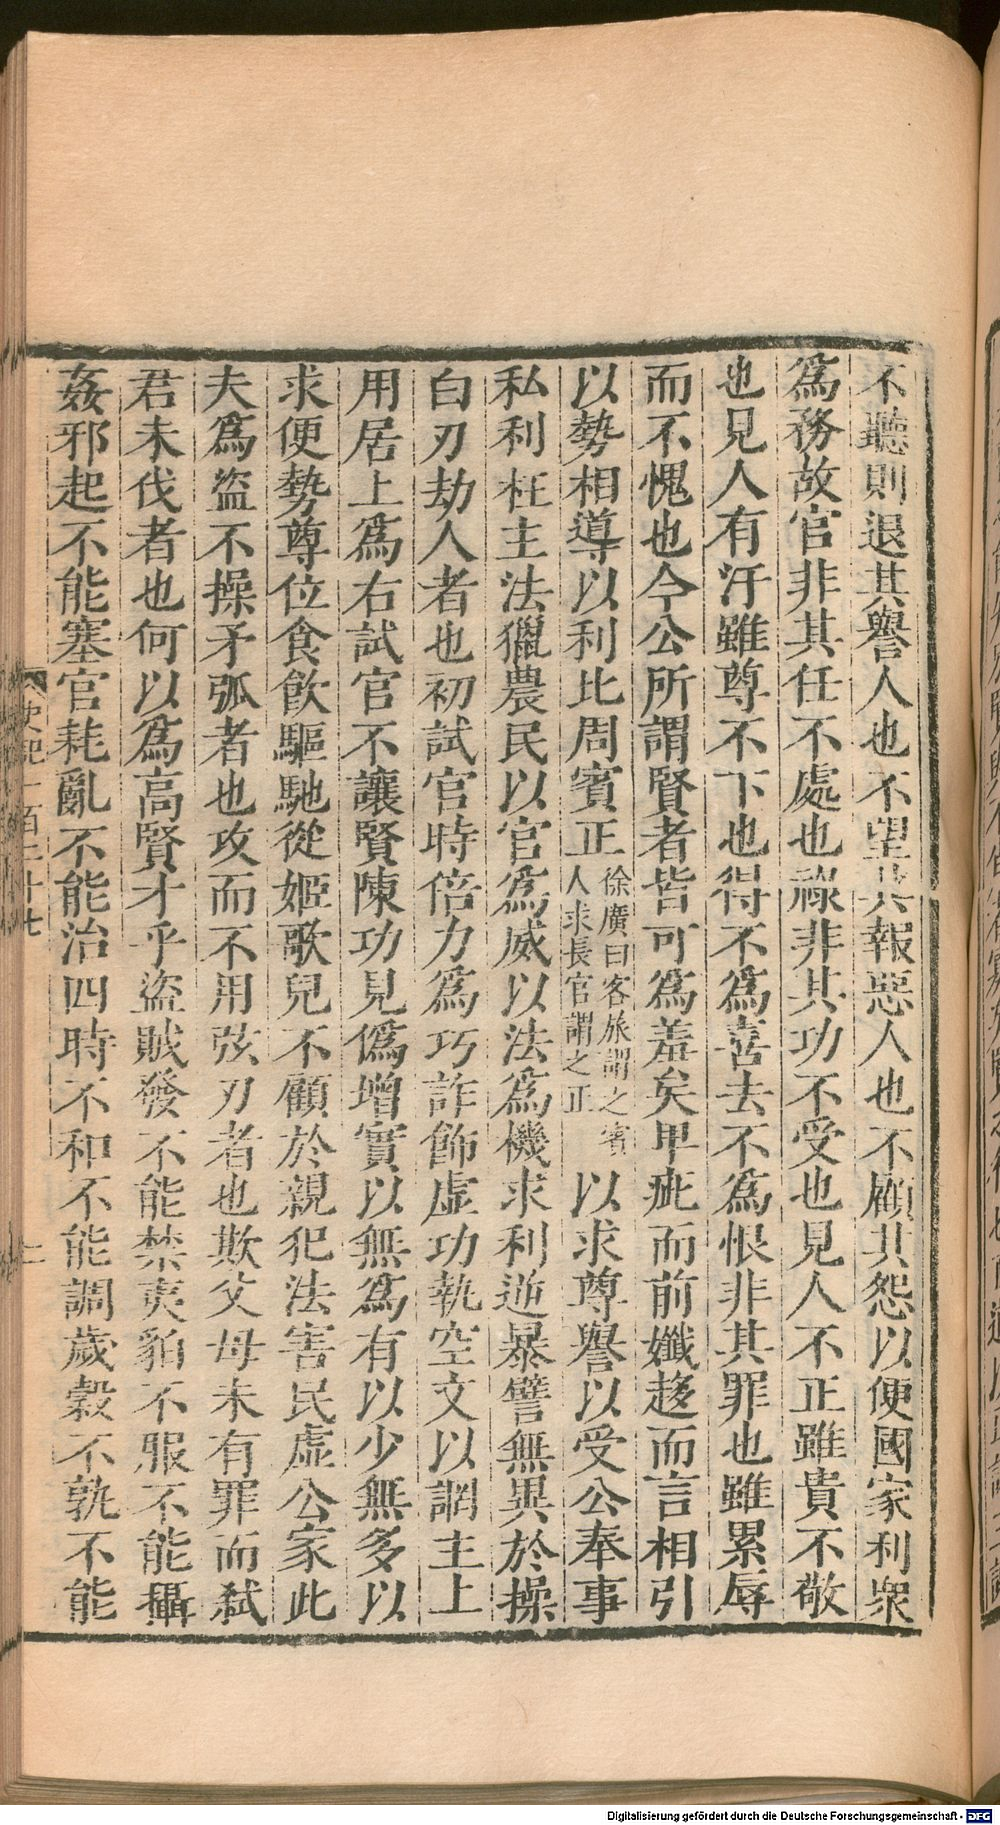 不聽則退其譽人也不望其報惡人也不顧其怨以便國家利衆
爲務故官非其任不處也祿非其功不受也見人不正雖貴不敬
也見人有汙雖尊不下也得不爲喜去不爲恨非其罪也雖累辱
而不愧也今公所謂賢者皆可爲羞矣卑疵而前孅趍而言相引
以勢相導以利比周賓正徐廣曰客旅謂之賓人求長官謂之正以求尊譽以受公奉事
私利枉主法獵農民以官爲威以法爲機求利逆暴譬無異於操
白刃劫人者也初試官時倍力爲巧詐飾虚功執空文以誷主上
用居上爲右試官不讓賢陳功見僞增實以無爲有以少無多以
求便勢尊位食飲驅馳從姬歌兒不顧於親犯法害民虚公家此
夫爲盜不操矛弧者也攻而不用弦刃者也欺父母未有罪而弑
君未伐者也何以爲高賢才乎盜賊發不能禁夷貊不服不能攝
姦邪起不能塞官耗亂不能治四時不和不能調歲穀不孰不能
史記一百二十七
二
Digitalisierung gefördert durch die Deutsche Forschungsgemeinschaft - DFG